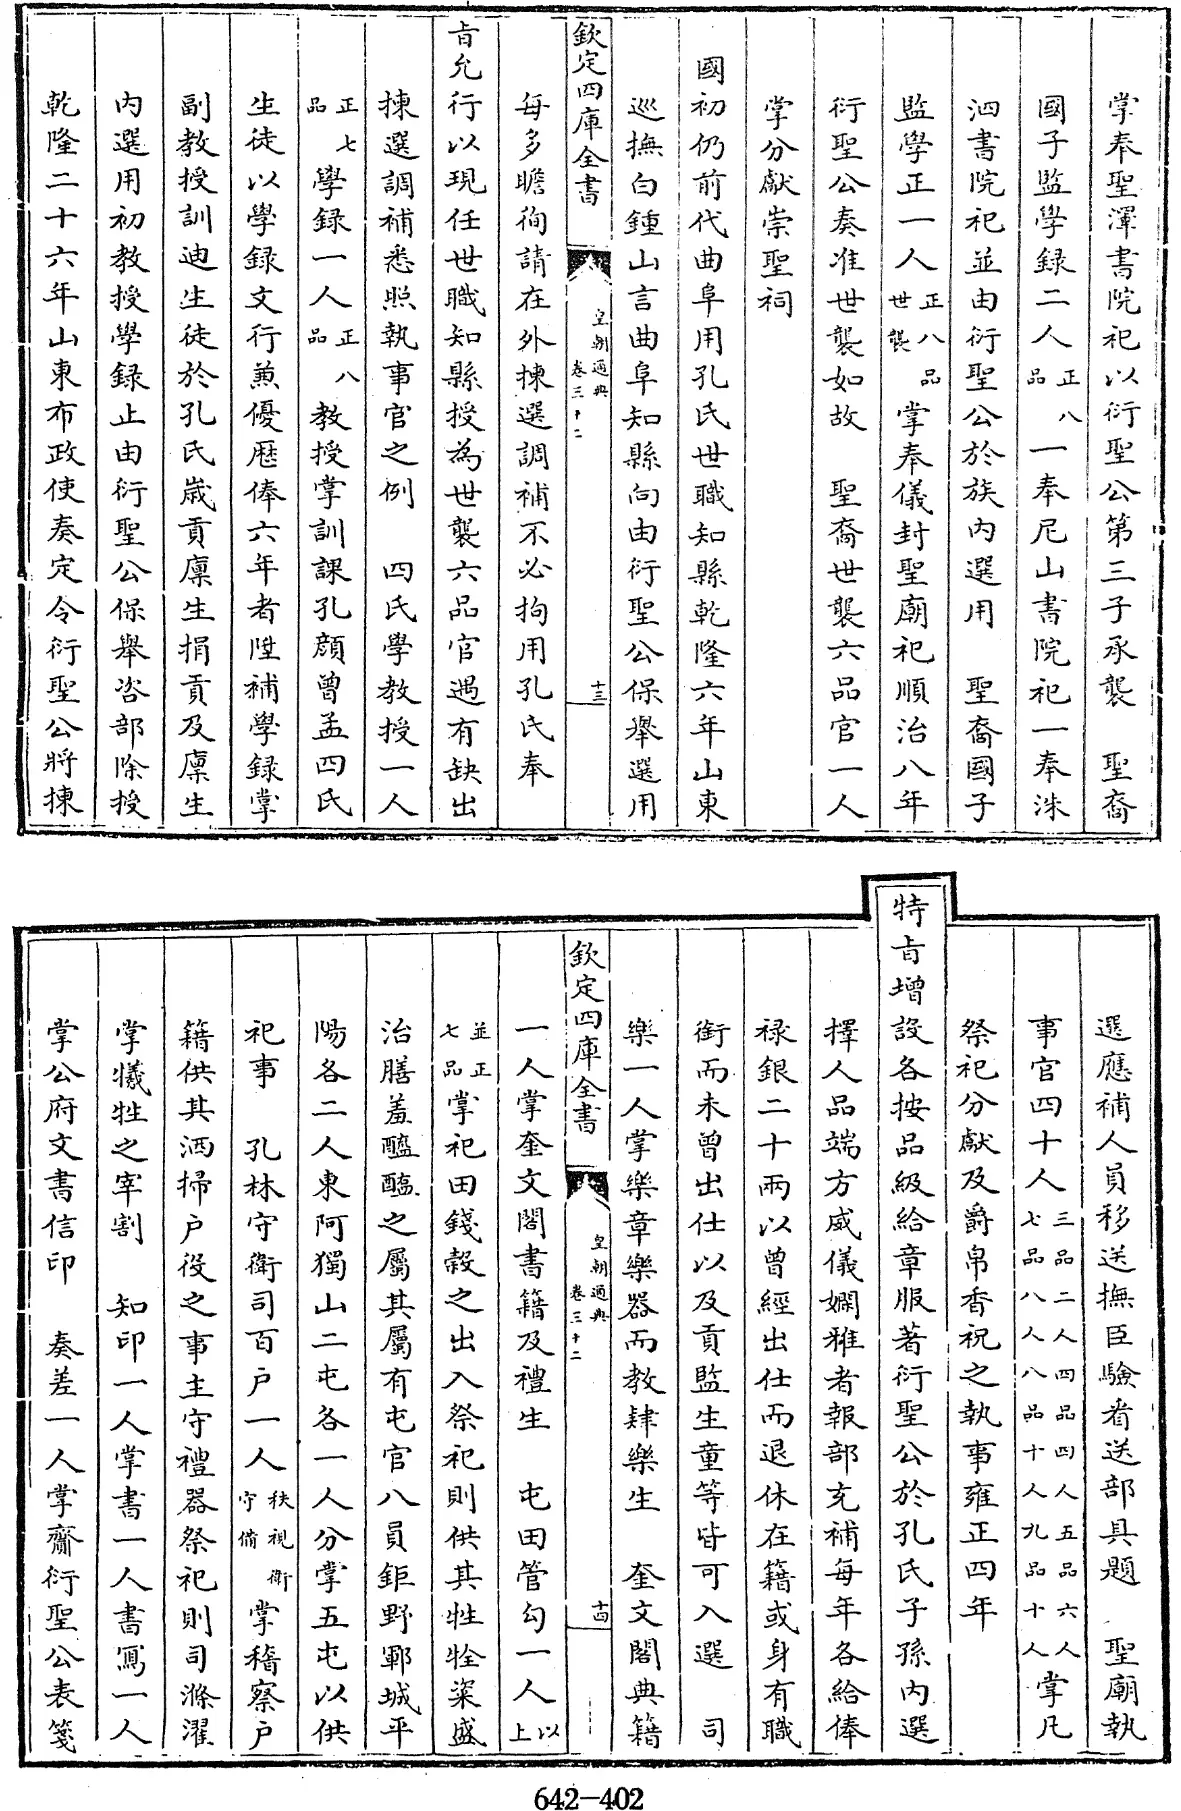 掌奉聖澤書院祀以衍聖公第三子承襲　聖裔
國子監學録二人正八品一奉尼山書院祀一奉洙
泗書院祀並由衍聖公於族内選用　聖裔國子
監學正一人正八品世襲掌奉儀封聖廟祀順治八年
衍聖公奏准世襲如故　聖裔世襲六品官一人
掌分獻崇聖祠
國初仍前代曲阜用孔氏世職知縣乾隆六年山東
巡撫白鍾山言曲阜知縣向由衍聖公保舉選用
欽定四庫全書　皇朝通典卷三十二　十三
每多瞻徇請在外揀選調補不必拘用孔氏奉
旨允行以現任世職知縣授為世襲六品官遇有缺出
揀選調補悉照執事官之例　四氏學教授一人
正七品學録一人正八品教授掌訓課孔顔曾孟四氏
生徒以學録文行兼優歴俸六年者陞補學録掌
副教授訓迪生徒於孔氏嵗貢廪生捐貢及廪生
内選用初教授學録止由衍聖公保舉咨部除授
乾隆二十六年山東布政使奏定令衍聖公將揀
選應補人員移送撫臣驗看送部具題　聖廟執
事官四十人三品二人四品四人五品六人七品八人八品十人九品十人掌凡
祭祀分獻及爵帛香祝之執事雍正四年
特旨增設各按品級給章服著衍聖公於孔氏子孫内選
擇人品端方威儀嫻雅者報部充補每年各給俸
禄銀二十兩以曾經出仕而退休在籍或身有職
銜而未曾出仕以及貢監生童等皆可入選　司
樂一人掌樂章樂器而教肄樂生　奎文閣典籍
欽定四庫全書　皇朝通典卷三十二　十四
一人掌奎文閣書籍及禮生　屯田管勾一人以上
並正七品掌祀田錢穀之出入祭祀則供其牲牷粢盛
治膳羞醯醢之屬其屬有屯官八員鉅野鄆城平
陽各二人東阿獨山二屯各一人分掌五屯以供
祀事　孔林守衛司百戸一人秩視衛守備掌稽察戸
籍供其洒掃戸役之事主守禮器祭祀則司滌濯
掌犧牲之宰割　知印一人掌書一人書寫一人
掌公府文書信印　奏差一人掌齎衍聖公表箋
642-402